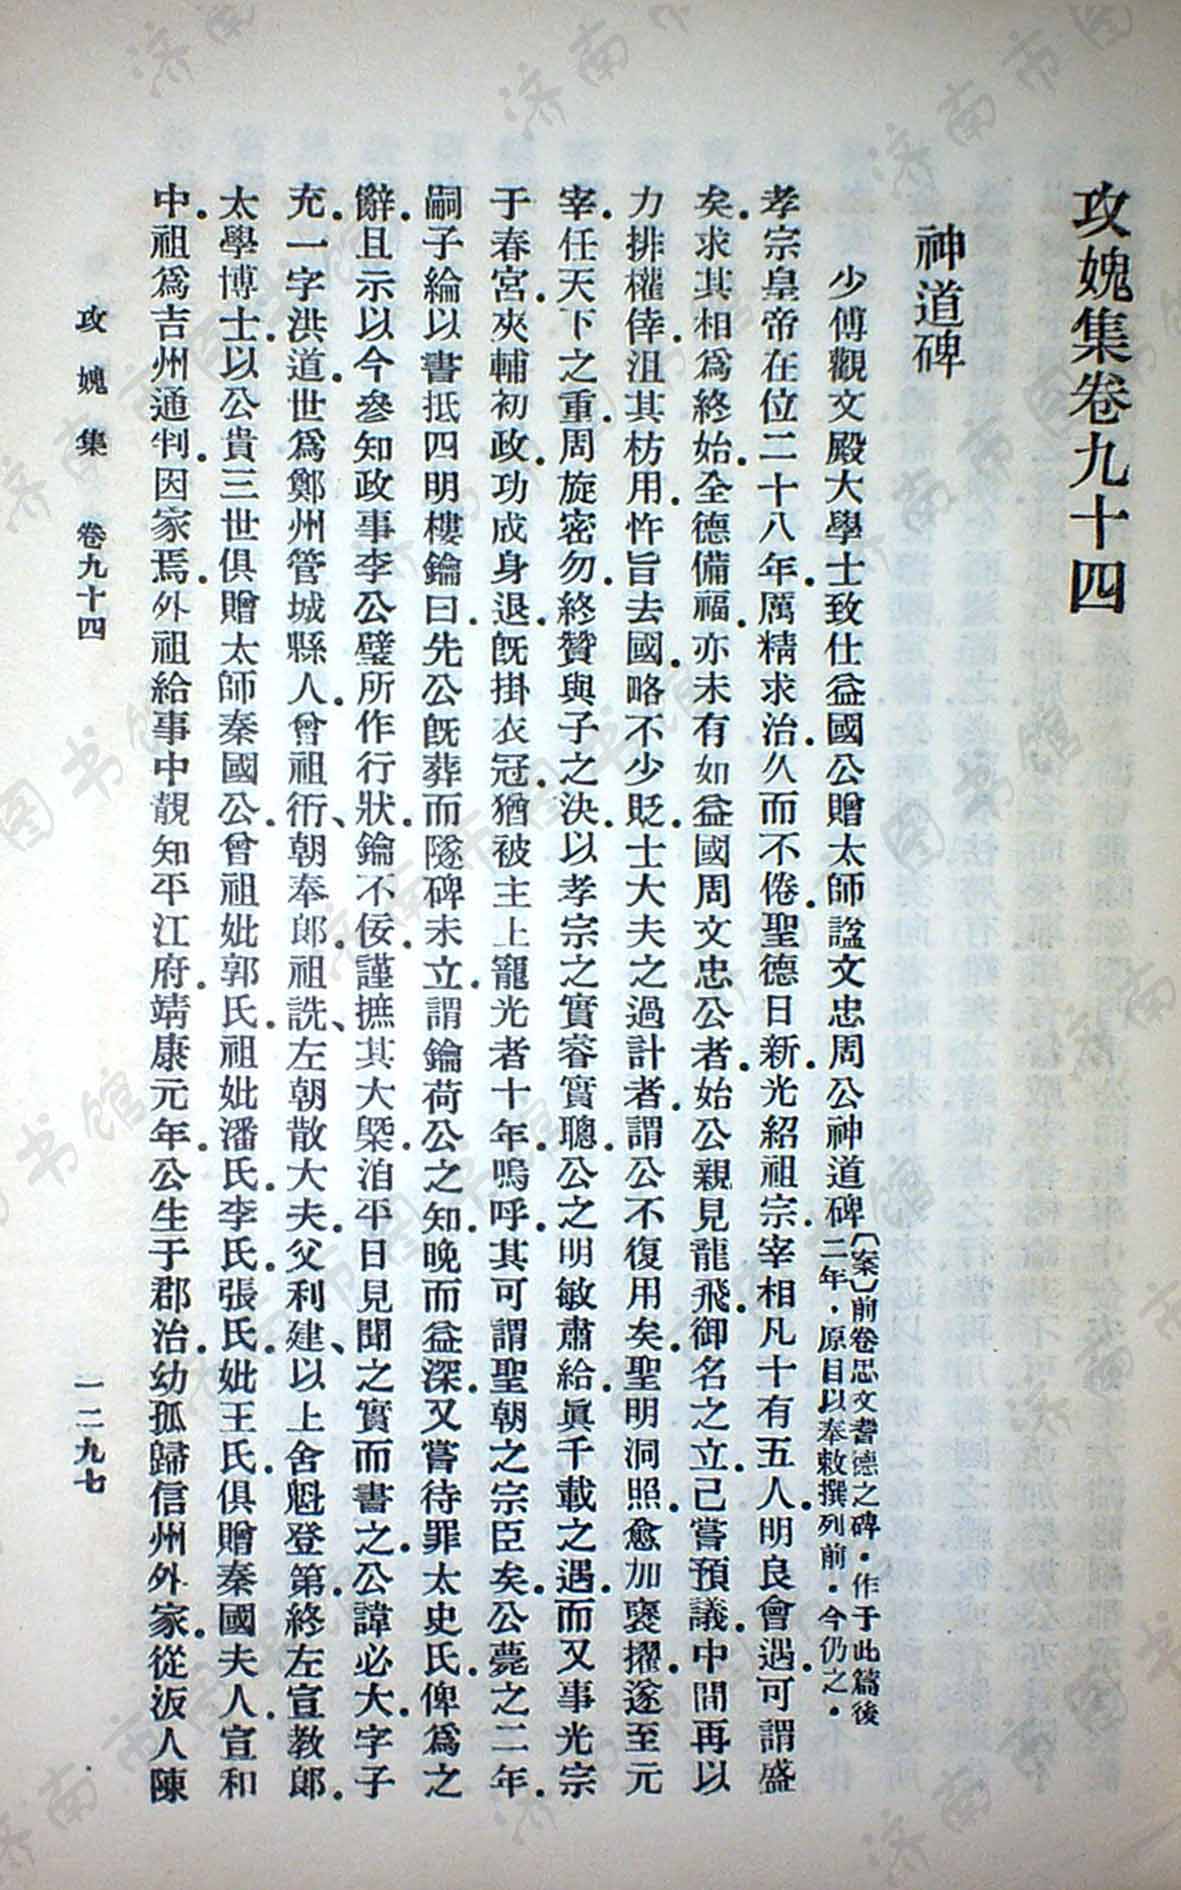 攻媿集卷九十四
神道碑
少傅觀文殿大學士致仕益國公贈太師諡文忠周公神道碑〔案〕前卷思文耆德之碑．作于此篇後二年．原目以奉敕撰列前．今仍之．
孝宗皇帝在位二十八年．厲精求治．久而不倦．聖德日新．光紹祖宗．宰相凡十有五人．明良會遇．可謂盛
矣．求其相爲終始．全德備福．亦未有如益國周文忠公者．始公親見龍飛．御名之立．己嘗預議．中間再以
力排權倖．沮其枋用．忤旨去國．略不少貶．士大夫之過計者．謂公不復用矣．聖明洞照．愈加褒擢．遂至元
宰．任天下之重．周旋密勿．終贊與子之決．以孝宗之實睿實聰．公之明敏肅給．眞千載之遇．而又事光宗
于春宮．夾輔初政．功成身退．旣掛衣冠．猶被主上寵光者十年．嗚呼．其可謂聖朝之宗臣矣．公薨之二年．
嗣子綸以書抵四明樓鑰曰．先公旣葬而隧碑未立．謂鑰荷公之知．晚而益深．又嘗待罪太史氏．俾爲之
辭．且示以今參知政事李公璧所作行狀．鑰不佞．謹摭其大槩．洎平日見聞之實而書之．公諱必大．字子
充．一字洪道．世爲鄭州管城縣人．曾祖衎、朝奉郎．祖詵、左朝散大夫．父利建、以上舍魁登第．終左宣教郎．
太學博士．以公貴三世俱贈太師秦國公．曾祖妣郭氏．祖妣潘氏．李氏．張氏．妣王氏．俱贈秦國夫人．宣和
中．祖爲吉州通判．因家焉．外祖給事中靚知平江府．靖康元年．公生于郡治．幼孤歸信州外家．從汳人陳
攻媿集 卷九十四 一二九七